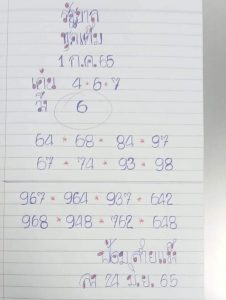 ชุดเต็ม
1 ก.ค. 65
เด่น 4 · 6 · 7
6
64 * 68 * 84 * 97
67 * 74 * 93 * 98
967 * 964 * 937 * 642
968 * 948 * 762 * 648
24 มิ.ย. 65